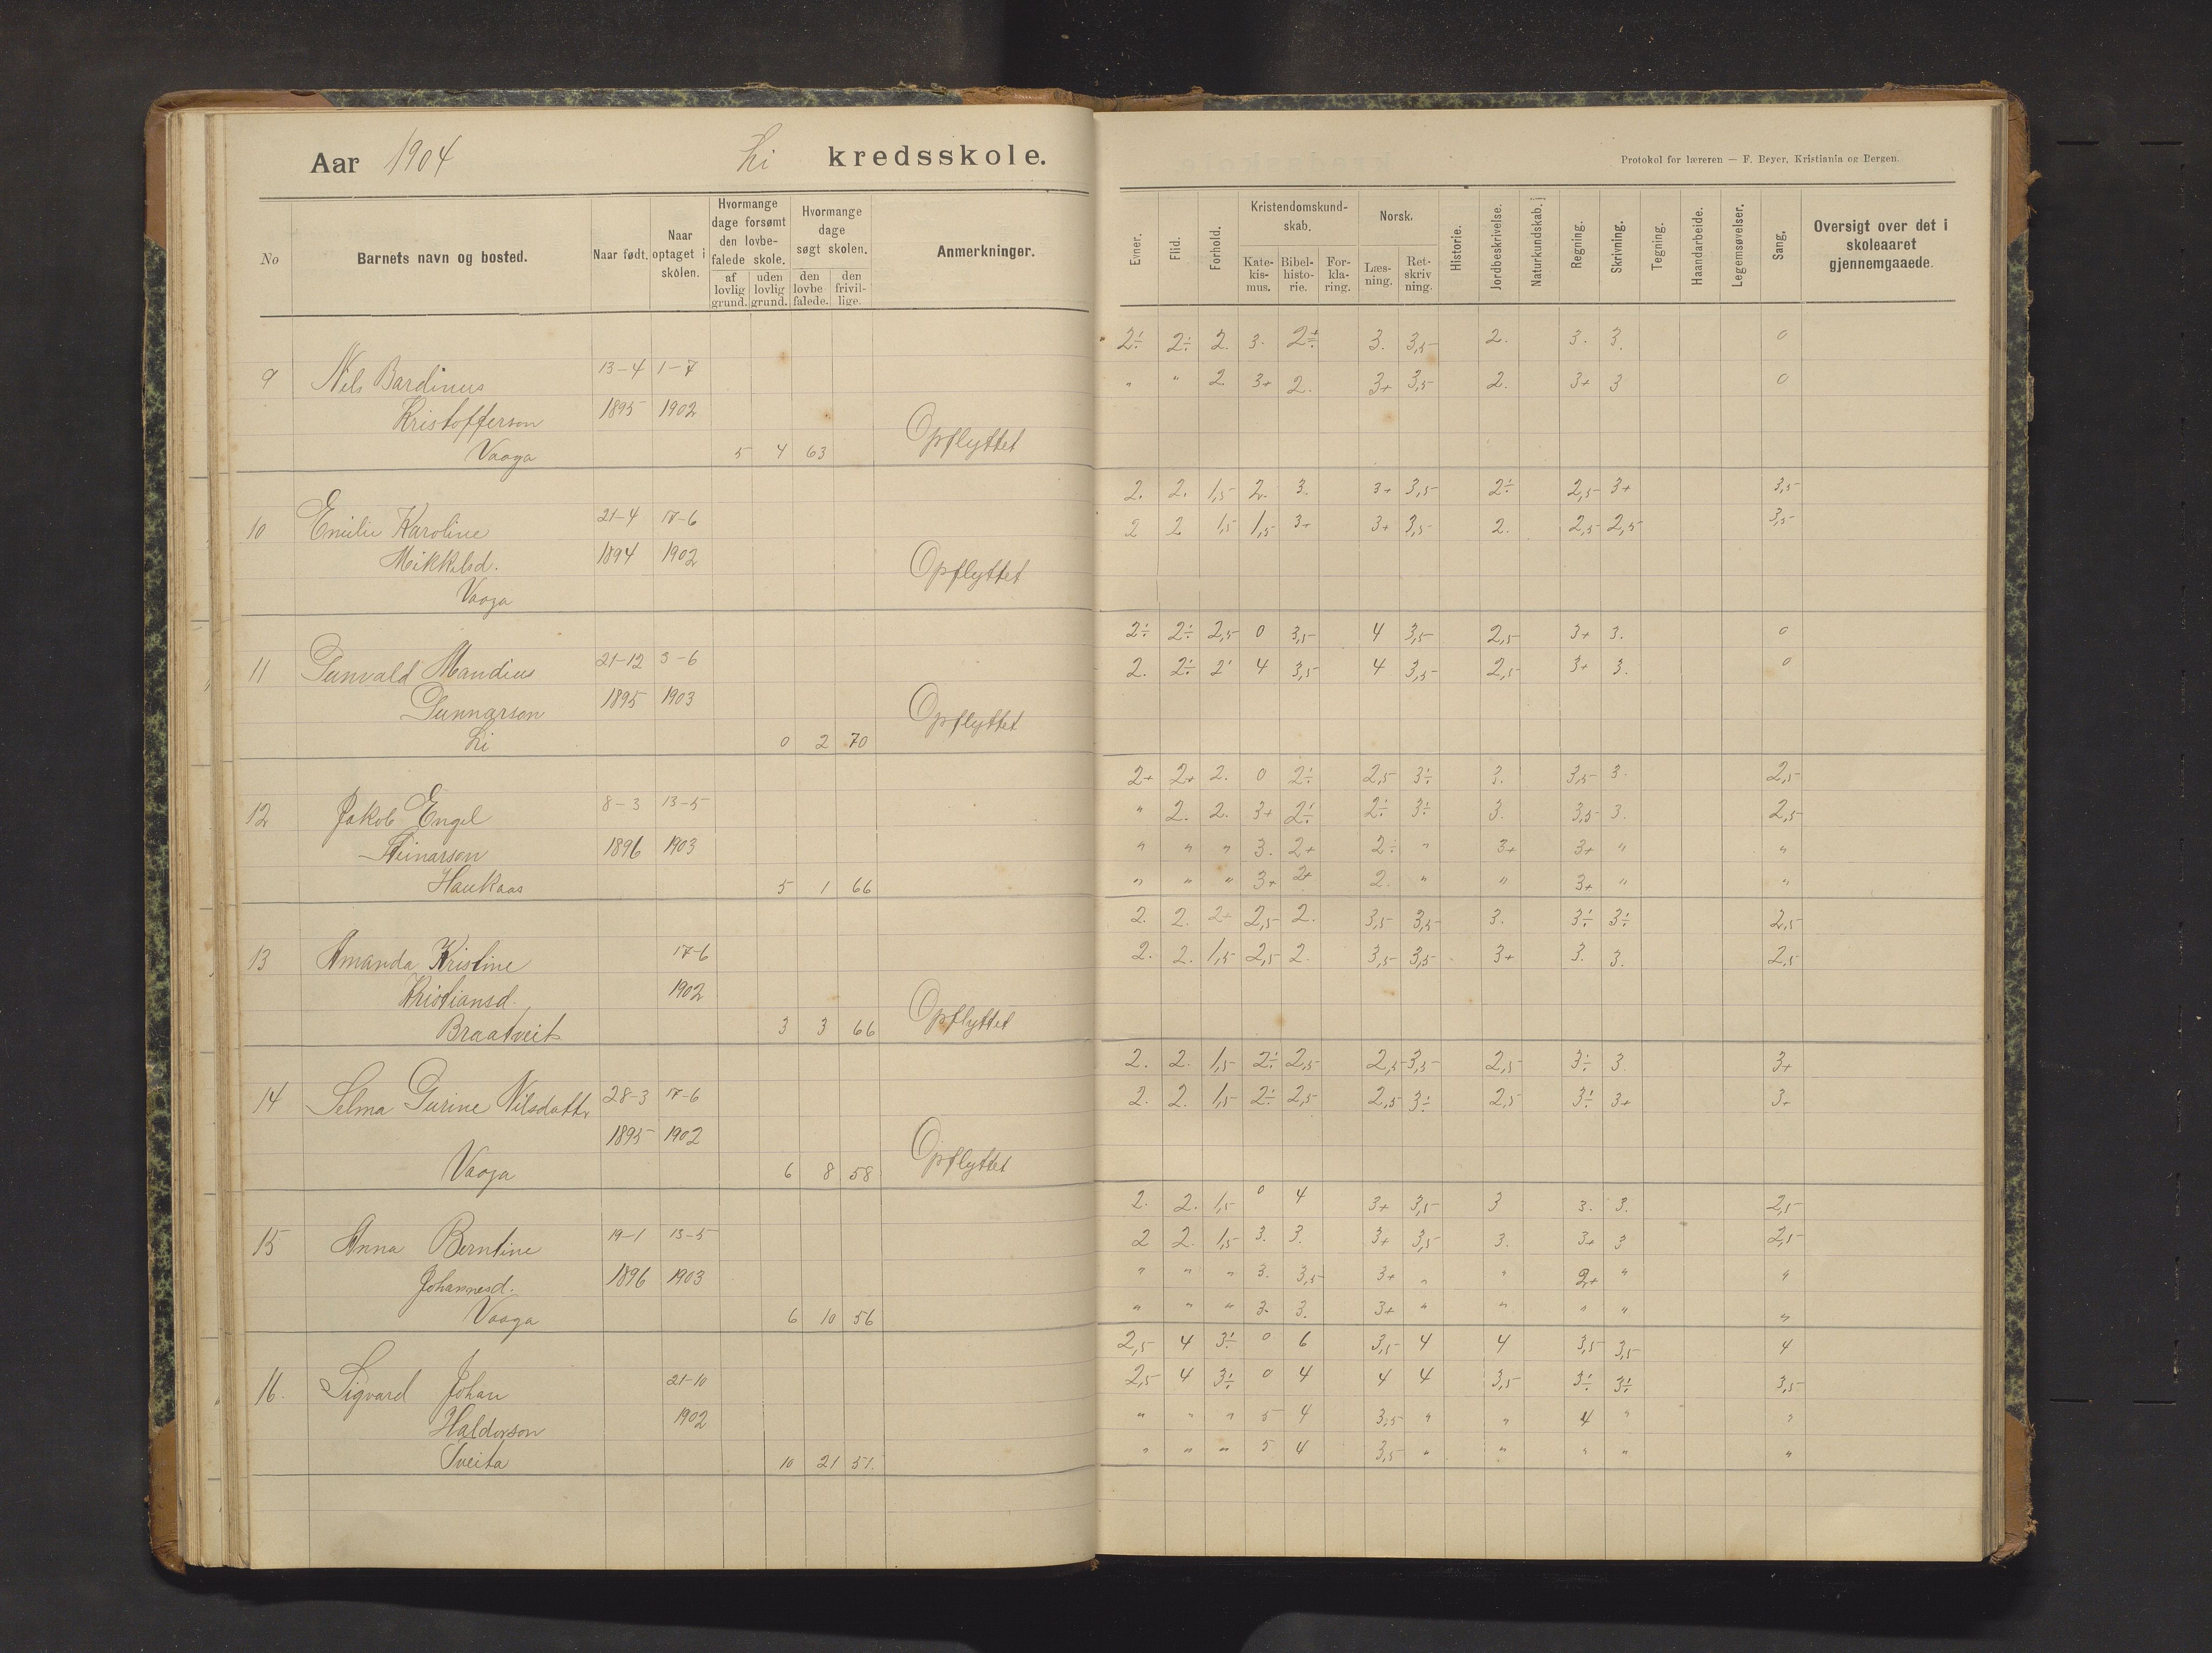 Aar 1904 Li kredsskole.
Protokol for læreren — F. Beyer, Kristiania og Bergen.
No
Barnets navn og bosted.
Naar født.
Naar optaget i skolen.
Hvormange dage forsømt den lovbefalede skole.
af lovlig grund.
uden lovlig grund.
Hvormange dage søgt skolen.
den lovbefalede.
den frivillige.
Anmerkninger.
Evner.
Flid.
Forhold.
Kristendomskundskab.
Katekismus.
Bibelhistorie.
Forklaring.
Norsk.
Læsning.
Retskrivning.
Historie.
Jordbeskrivelse.
Naturkundskab.
Regning.
Skrivning.
Tegning.
Haandarbeide.
Legemsøvelser.
Sang.
Oversigt over det i skoleaaret gjennemgaaede.
2÷ 2÷ 2. 3. 2÷ 3. 3,5 2. 3. 3. 0
9 Nils Bardinus 13-4 1-7
" " 2 3+ 2. 3+ 3,5 2. 3+ 3 0
Kristofferson 1895 1902
Vaaga 5 4 63 Opflyttet
2. 2. 1,5 2. 3. 3+ 3,5 2÷ 2,5 3+ 3,5
10 Emilie Karoline 21-4 17-6
2 2 1,5 1,5 3+ 3+ 3,5 2. 2,5 2,5 3,5
Mikkelsd. 1894 1902 Opflyttet
Vaaga
2÷ 2÷ 2,5 0 3,5 4 3,5 2,5 3+ 3. 0
11 Gunvald Mandius 21-12 3-6
2. 2÷ 2' 4 3,5 4 3,5 2,5 3+ 3. 0
Gunnarson 1895 1903 Opflyttet
Li 0 2 70
2+ 2+ 2. 0 2÷ 2,5 3÷ 3. 3,5 3. 2,5
12 Jakob Engel 8-3 13-5
" 2. 2. 3+ 2÷ 2÷ 3÷ 3. 3,5 3. 2,5
Steinarson 1896 1903
" " " 3. 2+ 2÷ " 3+ 3+ " "
Haukaas 5 1 66
" " " 3+ 2+ 2. " " 3+ " "
2. 2. 2+ 2,5 2. 3,5 3,5 3. 3÷ 3÷ 2,5
13 Amanda Kristine 17-6
2. 2. 1,5 2,5 2. 3,5 3,5 3+ 3. 3. 2,5
Kristiansd. 1902
Braatveit 3 3 66 Opflyttet
2. 2. 1,5 2÷ 2,5 2,5 3,5 2,5 3÷ 3. 3+
14 Selma Gurine Nilsdattr 28-3 17-6
2. 2. 1,5 2÷ 2,5 2,5 3÷ 2,5 3÷ 3+ 3+
1895 1902
Vaaga 6 8 58 Opflyttet
2. 2. 1,5 0 4 3+ 3,5 3 3. 3. 2,5
15 Anna Berntine 19-1 13-5
2 2. 1,5 3. 3. 3+ 3,5 3. 3+ 3 2,5
Johannesd. 1896 1903
" " " 3. 3,5 3+ " " 2+ " "
Vaaga 6 10 56
" " " 3. 3. 3+ " " " " "
2,5 4 3÷ 0 6 3,5 4 4 3,5 3,5 4
16. Sigvard Johan 21-10
2,5 4 3÷ 0 4 4 4 3,5 3÷ 3÷ 3,5
Haldorson 1902
" " " 5 4 3,5 " " 4 " "
Tveita 10 21 51.
" " " 5 4 3,5 " " " " "